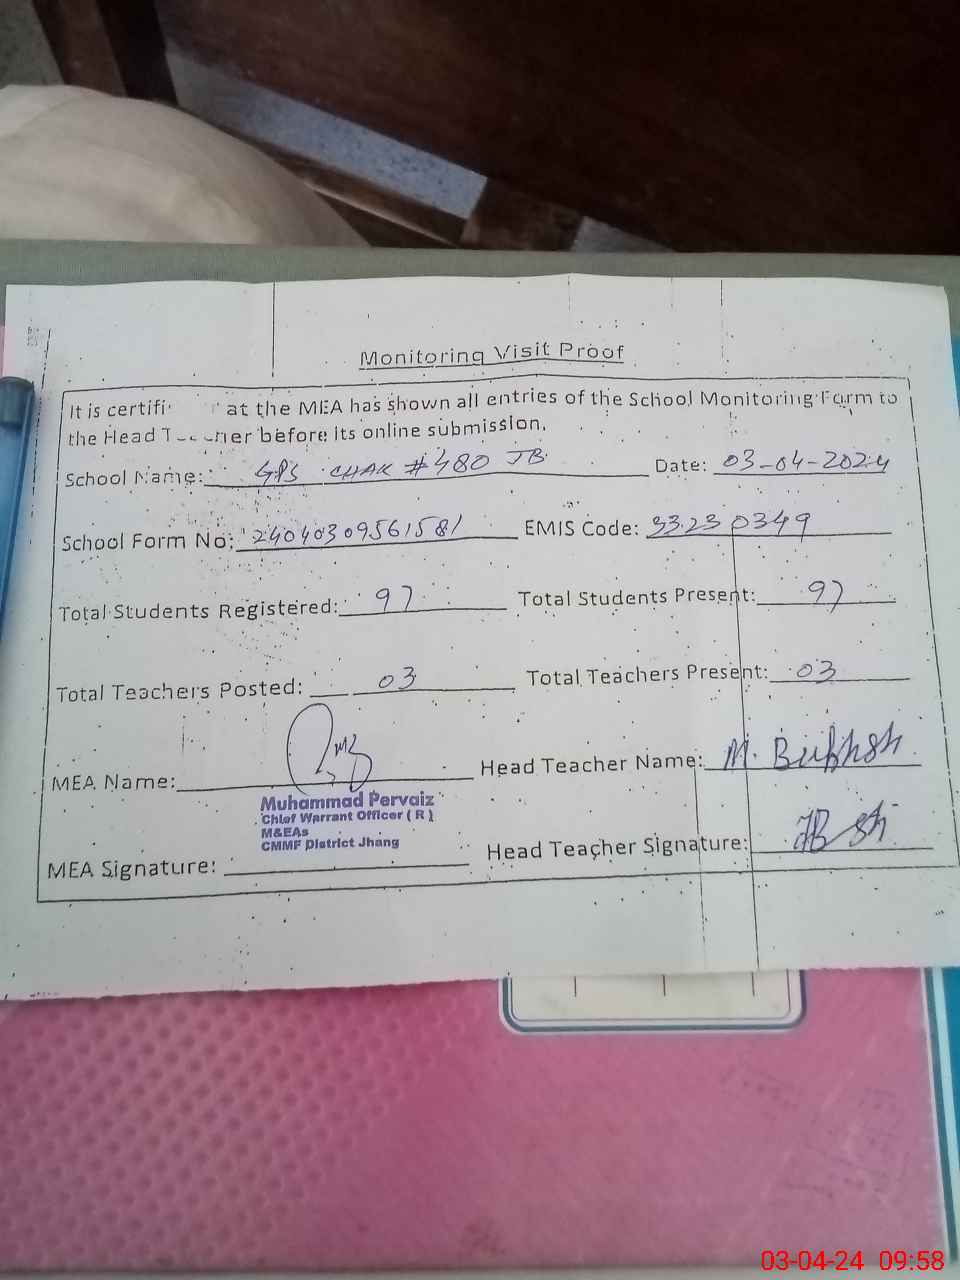 Monitoring Visit Proof
It is certifi at the MEA has shown all entries of the School Monitoring Form to
the Head T cher before its online submission.
School Name: GPS CHAK # 480 JB Date: 03-04-2024
School Form No: 24040309561581 EMIS Code: 33230349
Total Students Registered: 97 Total Students Present: 97
Total Teachers Posted: 03 Total Teachers Present: 03
MEA Name: Head Teacher Name: M. Bukhsh
Muhammad Pervaiz
Chief Warrant Officer ( R )
M&EAs
CMMF District Jhang
MEA Signature: Head Teacher Signature:
03-04-24 09:58